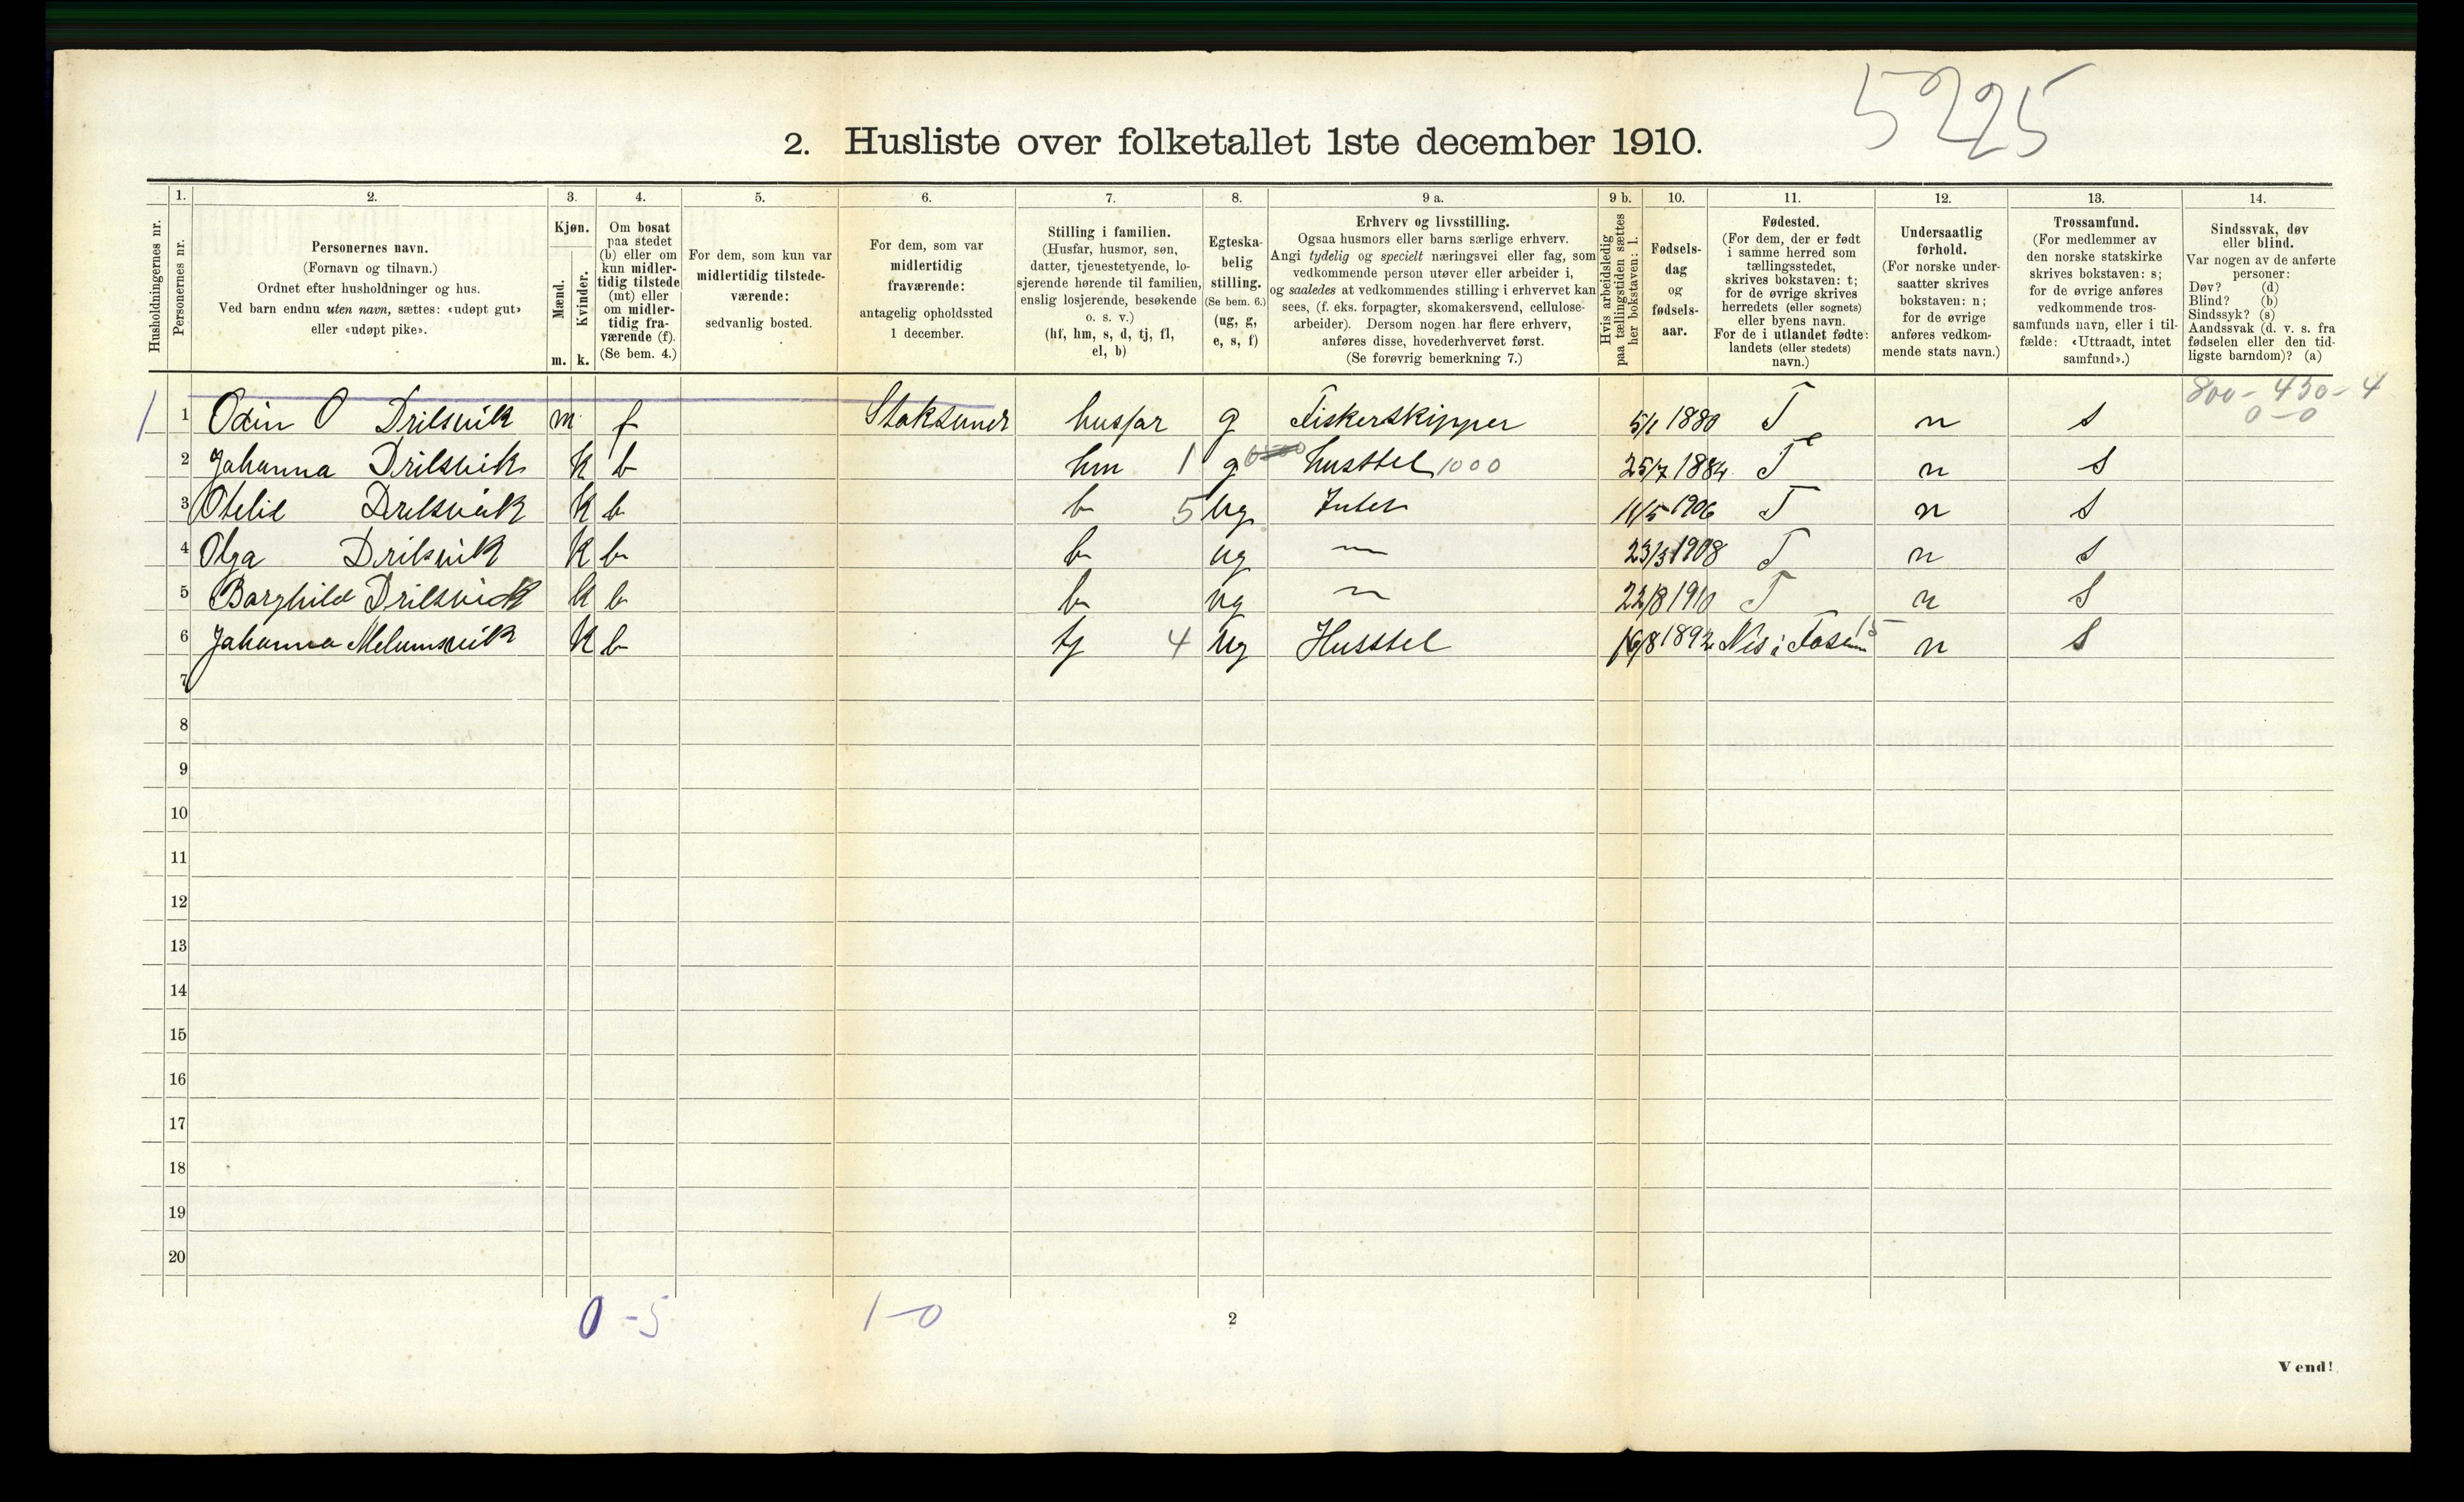 5225
2. Husliste over folketallet 1ste december 1910.
1. 2. 3. 4. 5. 6. 7. 8. 9 a. 9 b. 10. 11. 12. 13. 14.
Husholdningernes nr.
Personernes nr.
Personernes navn.
(Fornavn og tilnavn.)
Ordnet efter husholdninger og hus.
Ved barn endnu uten navn, sættes: «udøpt gut»
eller «udøpt pike».
Kjøn.
Mænd.
Kvinder.
m. k.
Om bosat
paa stedet
(b) eller om
kun midler-
tidig tilstede
(mt) eller
om midler-
tidig fra-
værende (f).
(Se bem. 4.)
For dem, som kun var
midlertidig tilstede-
værende:
sedvanlig bosted.
For dem, som var
midlertidig
fraværende:
antagelig opholdssted
1 december.
Stilling i familien.
(Husfar, husmor, søn,
datter, tjenestetyende, lo-
sjerende hørende til familien,
enslig losjerende, besøkende
o. s. v.)
(hf, hm, s, d, tj, fl,
el, b)
Egteska-
belig
stilling.
(Se bem. 6.)
(ug, g,
e, s, f)
Erhverv og livsstilling.
Ogsaa husmors eller barns særlige erhverv.
Angi tydelig og specielt næringsvei eller fag, som
vedkommende person utøver eller arbeider i,
og saaledes at vedkommendes stilling i erhvervet kan
sees, (f. eks. forpagter, skomakersvend, cellulose-
arbeider). Dersom nogen har flere erhverv,
anføres disse, hovederhvervet først.
(Se forøvrig bemerkning 7.)
Hvis arbeidsledig
paa tællingstiden sættes
her bokstaven: l.
Fødsels-
dag
og
fødsels-
aar.
Fødested.
(For dem, der er født
i samme herred som
tællingsstedet,
skrives bokstaven: t;
for de øvrige skrives
herredets (eller sognets)
eller byens navn.
For de i utlandet fødte:
landets (eller stedets)
navn.)
Undersaatlig
forhold.
(For norske under-
saatter skrives
bokstaven: n;
for de øvrige
anføres vedkom-
mende stats navn.)
Trossamfund.
(For medlemmer av
den norske statskirke
skrives bokstaven: s;
for de øvrige anføres
vedkommende tros-
samfunds navn, eller i til-
fælde: «Uttraadt, intet
samfund».)
Sindssvak, døv
eller blind.
Var nogen av de anførte
personer:
Døv? (d)
Blind? (b)
Sindssyk? (s)
Aandssvak (d. v. s. fra
fødselen eller den tid-
ligste barndom)? (a)
800 - 450 - 4
0 - 0
1 1 Odin O Drilsvik m f Stoksund husfar g Fiskerskipper 5/1 1880 T n s
2 Johanna Drilsvik k b hm 1 g husstel 1000 25/7 1884 T n s
3 Otelie Drilsvik k b b 5 ug Intet 11/5 1906 T n s
4 Olga Drilsvik k b b ug — 23/3 1908 T n s
5 Barghild Drilsvick k b b ug — 22/8 1910 T n s
6 Johanna Melumsvik k b tj 4 ug Husstel 16/8 1892 Nes i Fosen 15 n s
7
8
9
10
11
12
13
14
15
16
17
18
19
20
0 - 5 1 - 0
2
Vend!